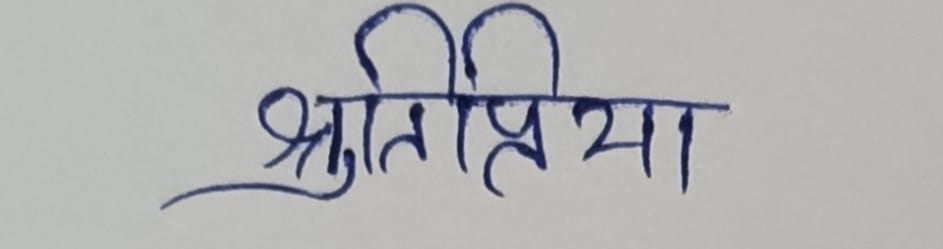 श्रुतिप्रिया